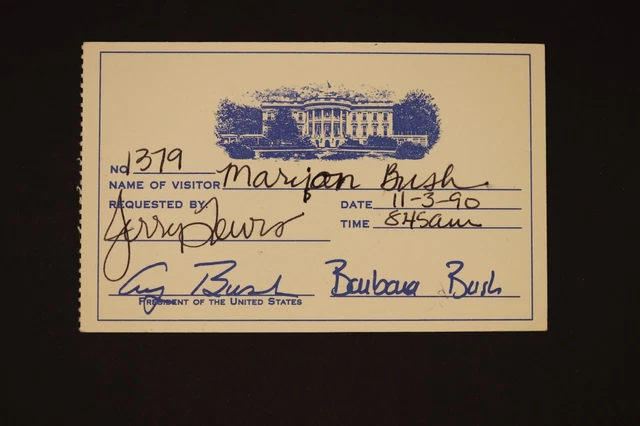 NO. 1379
NAME OF VISITOR Marijan Bush
REQUESTED BY: DATE 11-3-90
Jerry Lewis TIME 845am
Bush Barbara Bush
PRESIDENT OF THE UNITED STATES